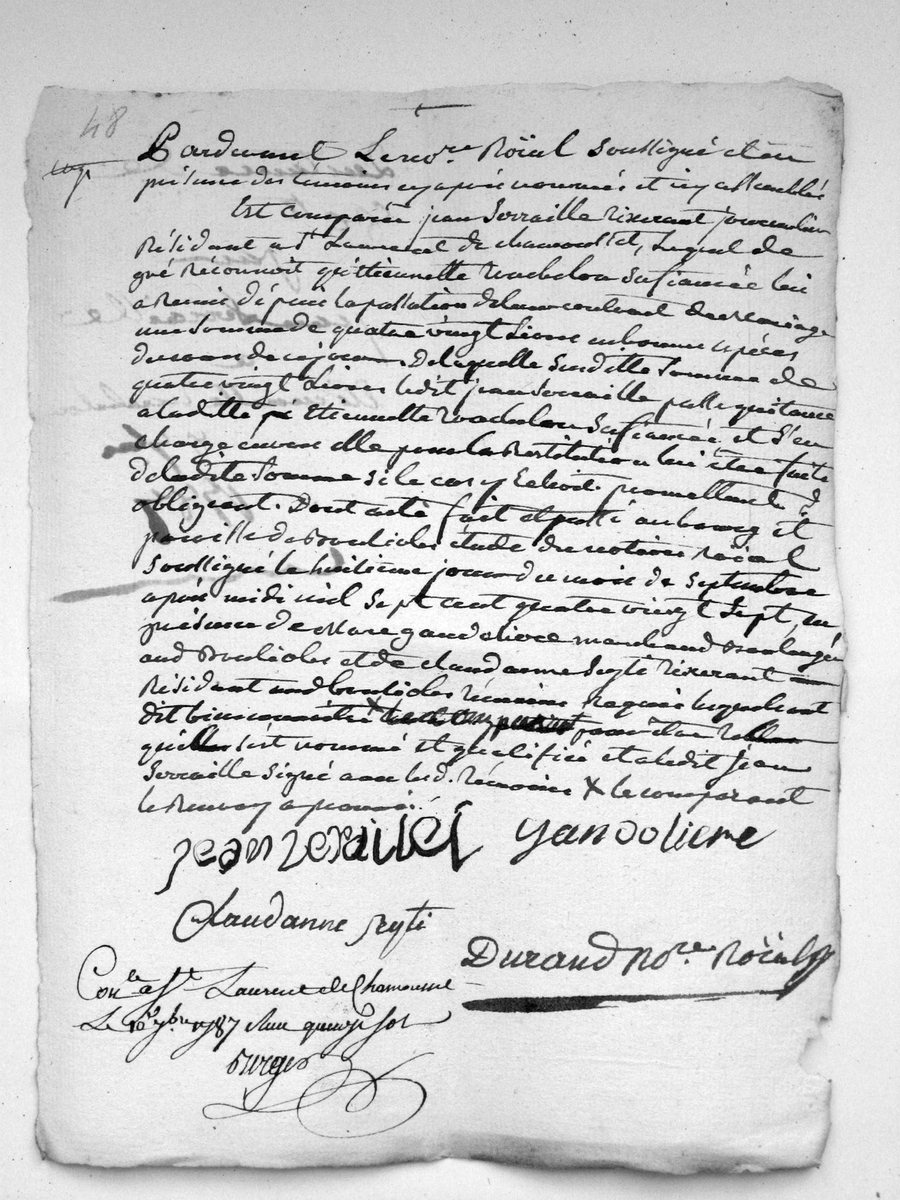 48
Pardevant Le no.re Roïal soussigné et en
présence des temoins cy après nommés et icy assemblés
Est comparû jean Serraille tixerant journalier
Résidant a St Laurent de chamousset, Lequel de
gré réconnoit qu'ettiennette Rachelou sa fiancée lui
a Remis dépuis la passation de leur contrat de mariage
une somme de quatre vingt Livres en bonnes espèces
du cours de ce jour. De laquelle susditte somme de
quatre vingt Livres ledit jean Serraille passe quittance
a laditte Etiennette Rachelou sa fiancée et s'en
charge envers elle pour la Restitution lui être faite
de ladite somme si le cas y Echoit. promettant &
obligeant. Dont acte fait et passé au bourg et
paroisse de étude du notaire roïal
soussigné le huitieme jour du mois de septembre
après midi mil sept cent quatre vingt sept, en
présence de Marc gandoliere marchand boulanger
aud et de claudanne Seyti tixerant
Résident aud témoins Requis lesquels ont
dit bien connoitre X pour être tel
qu'il s'est nommé et qualifié et a ledit jean
Serraille signé avec lesd. témoins X le comparant
le Renvoy approuvé.
jean Seraillel gandoliere
Claudanne seyti
Durand No.re Roïal
Con.le a St Laurent de Chamousset
Le 10 7bre 1787 Reçu quinze sol